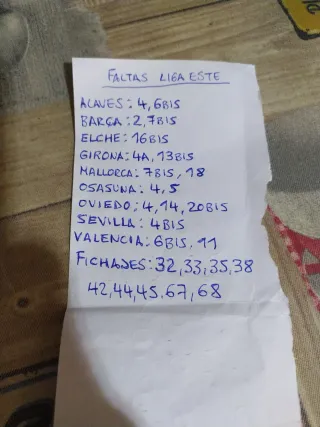 FALTAS LIGA ESTE
ALAVES: 4, 6BIS
BARÇA: 2, 7BIS
ELCHE: 16BIS
GIRONA: 4A, 13BIS
MALLORCA: 7BIS, 18
OSASUNA: 4, 5
OVIEDO: 4, 14, 20BIS
SEVILLA: 4BIS
VALENCIA: 6BIS, 11
FICHAJES: 32, 33, 35, 38
42, 44, 45, 67, 68